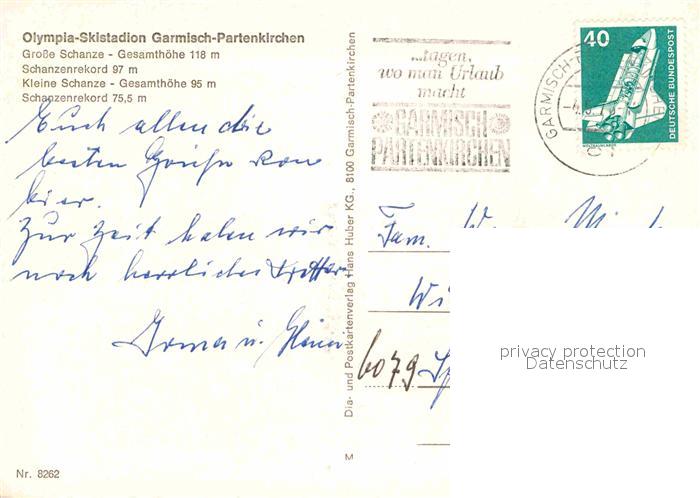 Olympia-Skistadion Garmisch-Partenkirchen
Große Schanze - Gesamthöhe 118 m
Schanzenrekord 97 m
Kleine Schanze - Gesamthöhe 95 m
Schanzenrekord 75,5 m
Euch allen die
besten Grüße von
hier.
Zur Zeit haben wir
noch herrliches Wetter
Irma u. Heini
Nr. 8262
Dia- und Postkartenverlag Hans Huber KG., 8100 Garmisch-Partenkirchen
M
...tagen,
wo man Urlaub
macht
GARMISCH
PARTENKIRCHEN
GARMISCH-
40
DEUTSCHE BUNDESPOST
WELTRAUMLABOR
Fam.
Wi
6079
privacy protection
Datenschutz